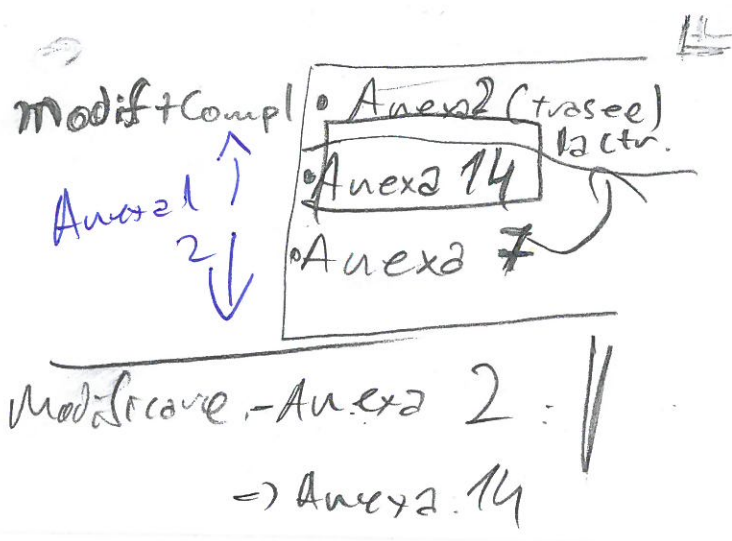 Modif+Compl
• Anexa2 (trasee)
la ctr.
• Anexa 14
Anexa 1
2
• Anexa 7
Modificare - Anexa 2 :
=> Anexa 14